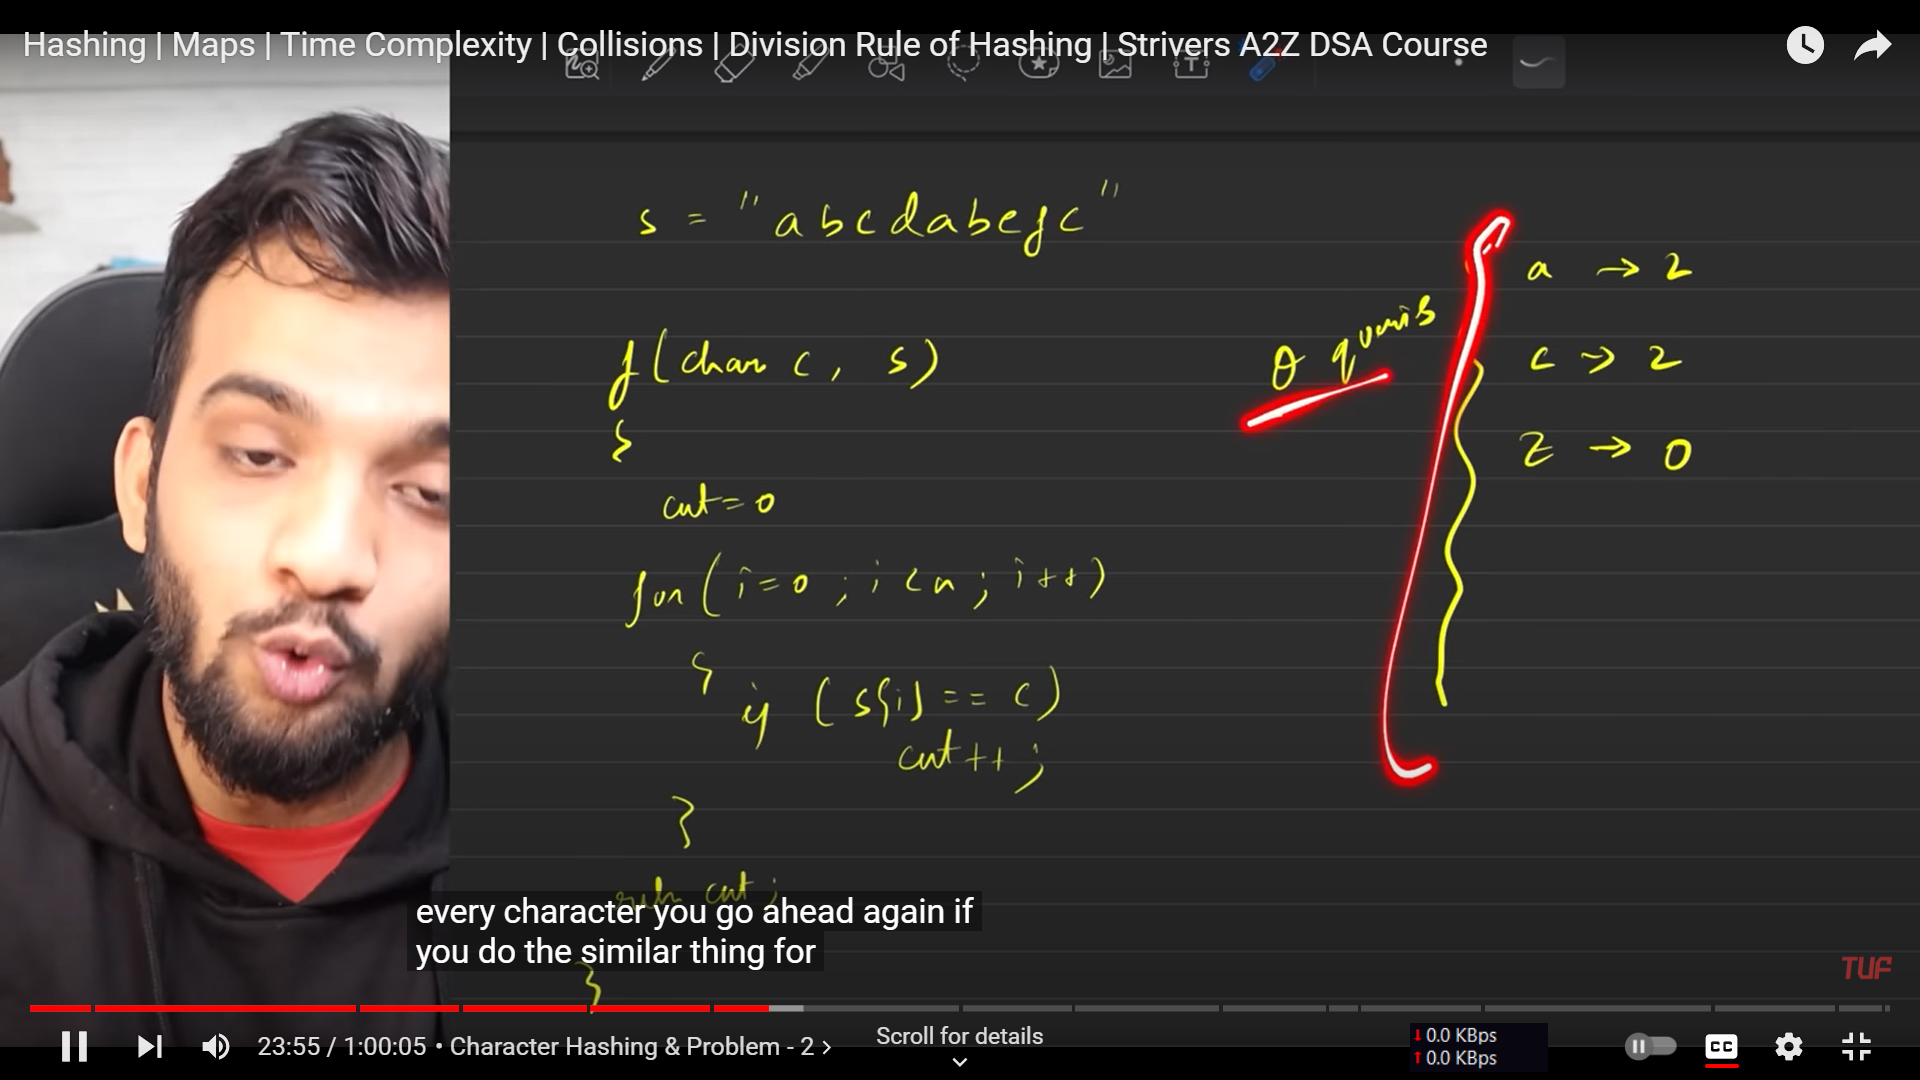 Hashing | Maps | Time Complexity | Collisions | Division Rule of Hashing | Strivers A2Z DSA Course
s = "abcdabefc"
a → 2
f(char c, s)
Q queries
c → 2
{
z → 0
cnt = 0
for(i=0; i<n; i++)
{
if (s[i] == c)
cnt++;
}
cnt;
}
every character you go ahead again if
you do the similar thing for
TUF
23:55 / 1:00:05 • Character Hashing & Problem - 2 >
Scroll for details
0.0 KBps
0.0 KBps
CC